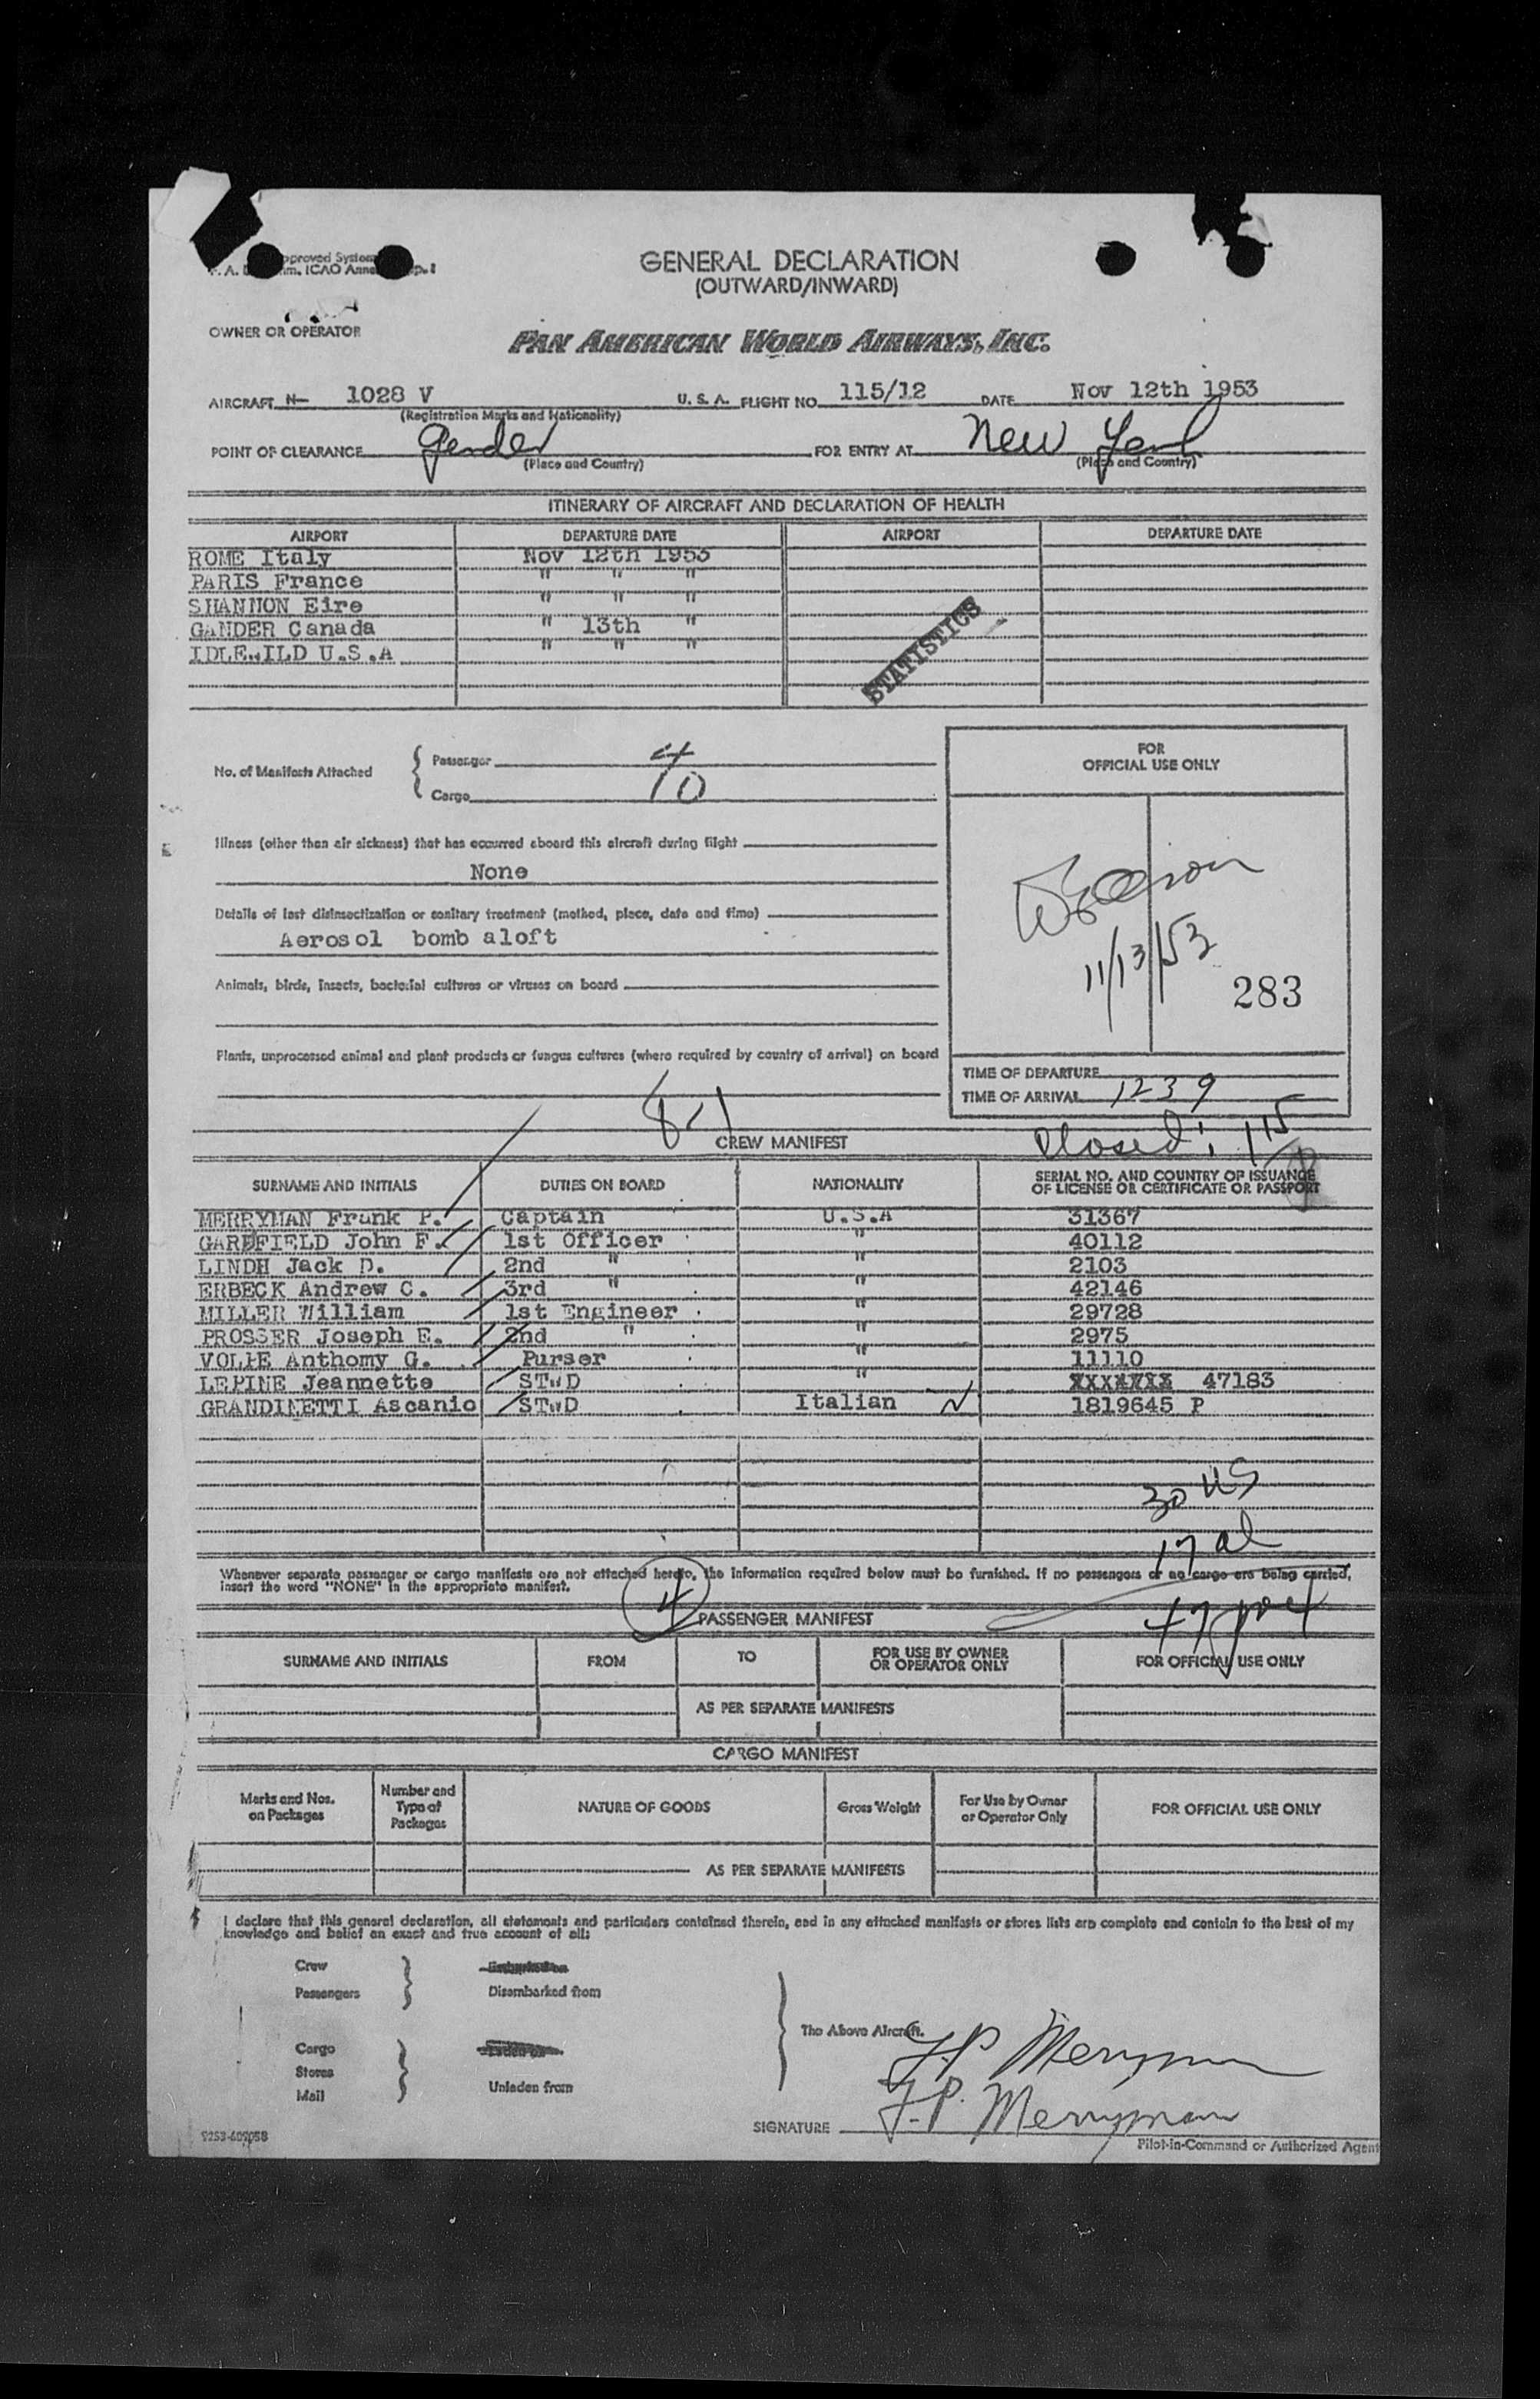 GENERAL DECLARATION
(OUTWARD/INWARD)
OWNER OR OPERATOR
PAN AMERICAN WORLD AIRWAYS, INC.
AIRCRAFT N- 1028 V U. S. A. FLIGHT NO. 115/12 DATE Nov 12th 1953
(Registration Marks and Nationality)
POINT OF CLEARANCE Gander FOR ENTRY AT New York
(Place and Country) (Place and Country)
ITINERARY OF AIRCRAFT AND DECLARATION OF HEALTH
AIRPORT DEPARTURE DATE AIRPORT DEPARTURE DATE
ROME Italy Nov 12th 1953
PARIS France " " "
SHANNON Eire " " "
GANDER Canada " 13th "
IDLEWILD U.S.A " " "
STATISTICS
No. of Manifests Attached
Passenger 4
Cargo 10
FOR
OFFICIAL USE ONLY
Illness (other than air sickness) that has occurred aboard this aircraft during flight
None
Details of last disinsectization or sanitary treatment (method, place, date and time)
Aerosol bomb aloft
11/13/53
283
Animals, birds, insects, bacterial cultures or viruses on board
Plants, unprocessed animal and plant products or fungus cultures (where required by country of arrival) on board
TIME OF DEPARTURE
TIME OF ARRIVAL 1239
8-1
closed: 115
CREW MANIFEST
SURNAME AND INITIALS DUTIES ON BOARD NATIONALITY SERIAL NO. AND COUNTRY OF ISSUANCE OF LICENSE OR CERTIFICATE OR PASSPORT
MERRYMAN Frank P. Captain U.S.A 31367
GARDFIELD John F. 1st Officer " 40112
LINDH Jack D. 2nd " " 2103
ERBECK Andrew C. 3rd " " 42146
MILLER William 1st Engineer " 29728
PROSSER Joseph E. 2nd " " 2975
VOLPE Anthomy G. Purser " 11110
LEPINE Jeannette STWD " 47183
GRANDINETTI Ascanio STWD Italian 1819645 P
30 US
17 al
Whenever separate passenger or cargo manifests are not attached hereto, the information required below must be furnished. If no passengers or no cargo are being carried,
insert the word "NONE" in the appropriate manifest.
4
47
PASSENGER MANIFEST
SURNAME AND INITIALS FROM TO FOR USE BY OWNER OR OPERATOR ONLY FOR OFFICIAL USE ONLY
AS PER SEPARATE MANIFESTS
CARGO MANIFEST
Marks and Nos. on Packages Number and Type of Packages NATURE OF GOODS Gross Weight For Use by Owner or Operator Only FOR OFFICIAL USE ONLY
AS PER SEPARATE MANIFESTS
I declare that this general declaration, all statements and particulars contained therein, and in any attached manifests or stores lists are complete and contain to the best of my
knowledge and belief an exact and true account of all:
Crew
Passengers Disembarked from
The Above Aircraft.
Cargo
Stores
Mail Unladen from
F.P Merryman
SIGNATURE F.P. Merryman
Pilot-in-Command or Authorized Agent